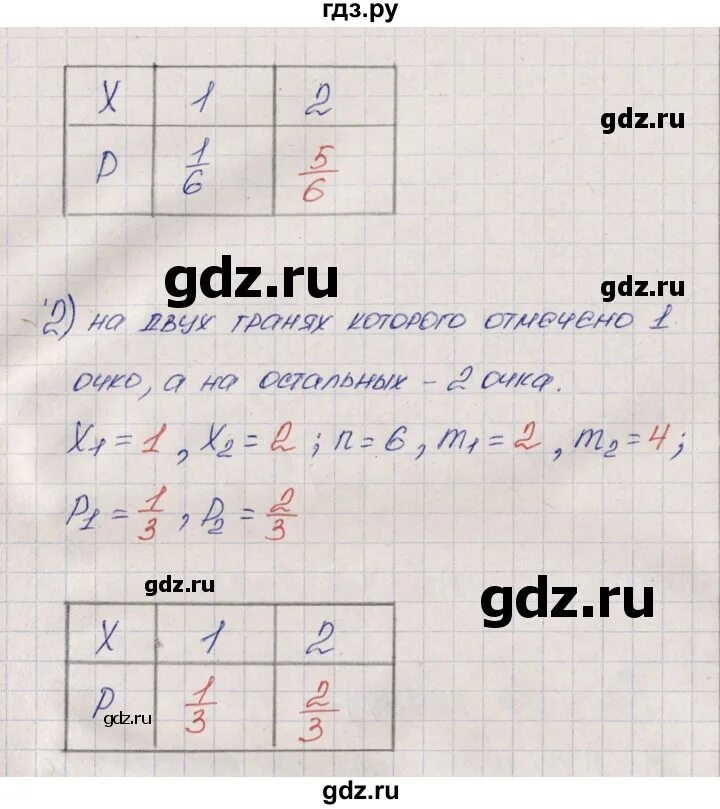 гдз.ру
X 1 2
P 1/6 5/6
gdz.ru
gdz.ru
gdz.ru
2) на двух гранях которого отмечено 1
очко, а на остальных – 2 очка.
X₁ = 1, X₂ = 2; n = 6, m₁ = 2, m₂ = 4;
P₁ = 1/3, P₂ = 2/3
gdz.ru
gdz.ru
X 1 2
P 1/3 2/3
gdz.ru
gdz.ru